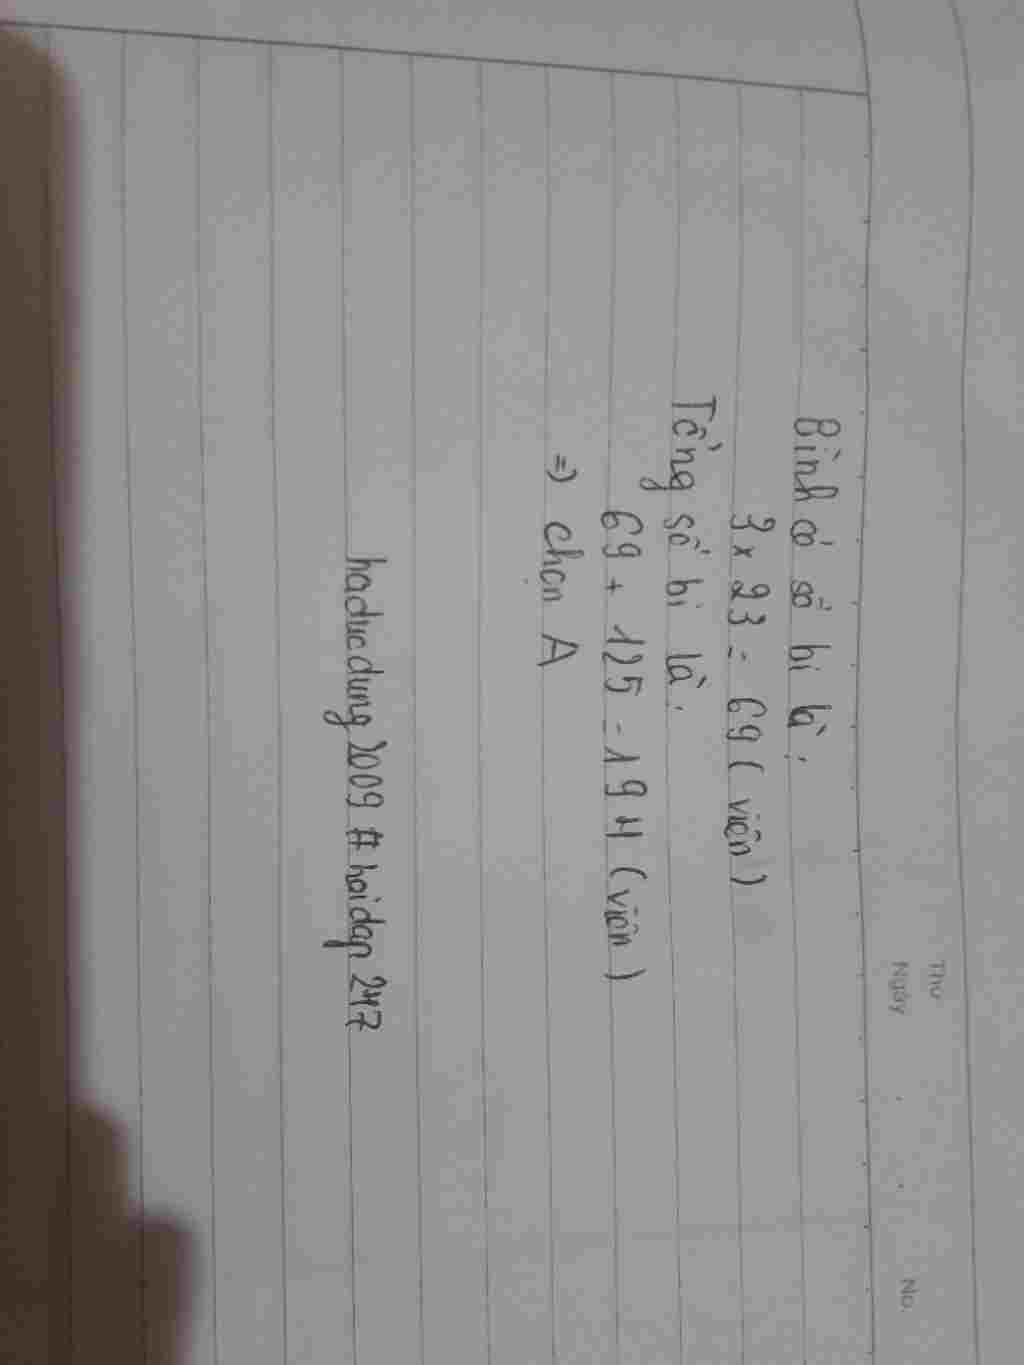 Thứ
Ngày
No.
Bình có số bi là:
3 x 23 = 69 (viên)
Tổng số bi là:
69 + 125 = 194 (viên)
=> chọn A
haducdung2009 # hoidap 247